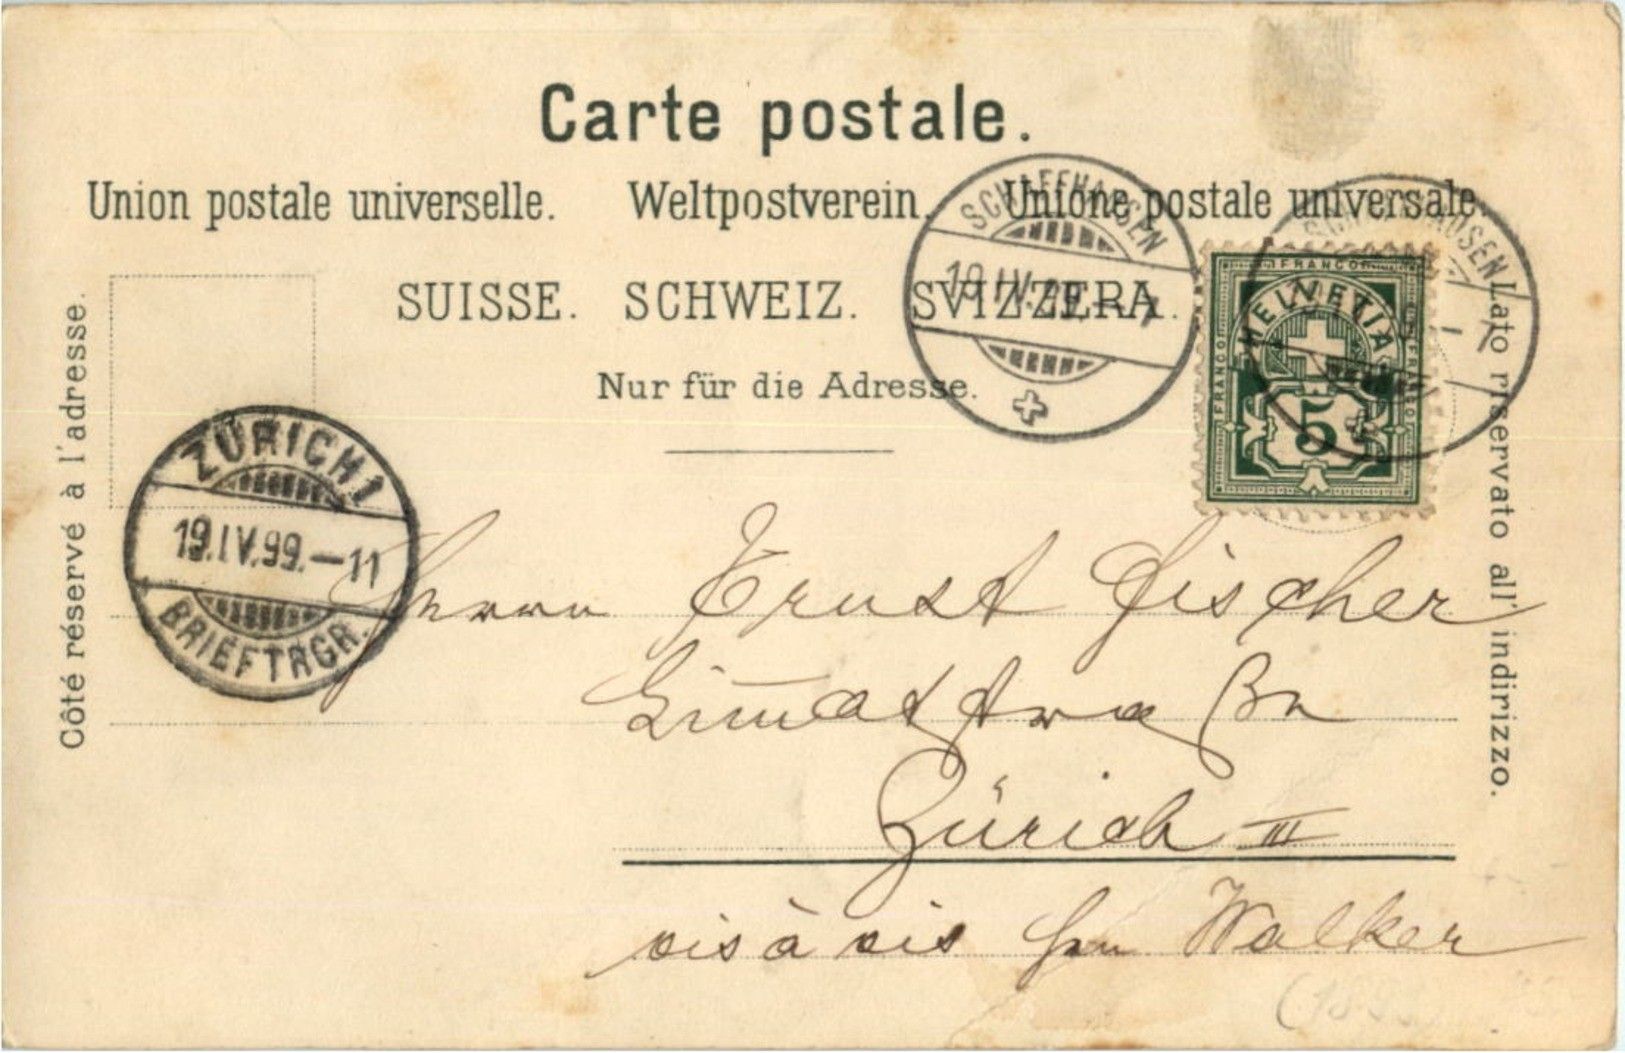 Carte postale.
Union postale universelle. Weltpostverein. Unione postale universale
SUISSE. SCHWEIZ. SVIZZERA.
Nur für die Adresse.
Côté réservé à l'adresse.
Lato riservato all' indirizzo.
SCHAFFHAUSEN
19.IV.99.-7
SCHAFFHAUSEN
-7
FRANCO
HELVETIA
FRANCO
FRANCO
5
ZÜRICH 1
19.IV.99.-11
BRIEFTRGR.
Herrn Ernst Fischer
Lim̅atstraße
Zürich III
vis à vis Hrn Walker